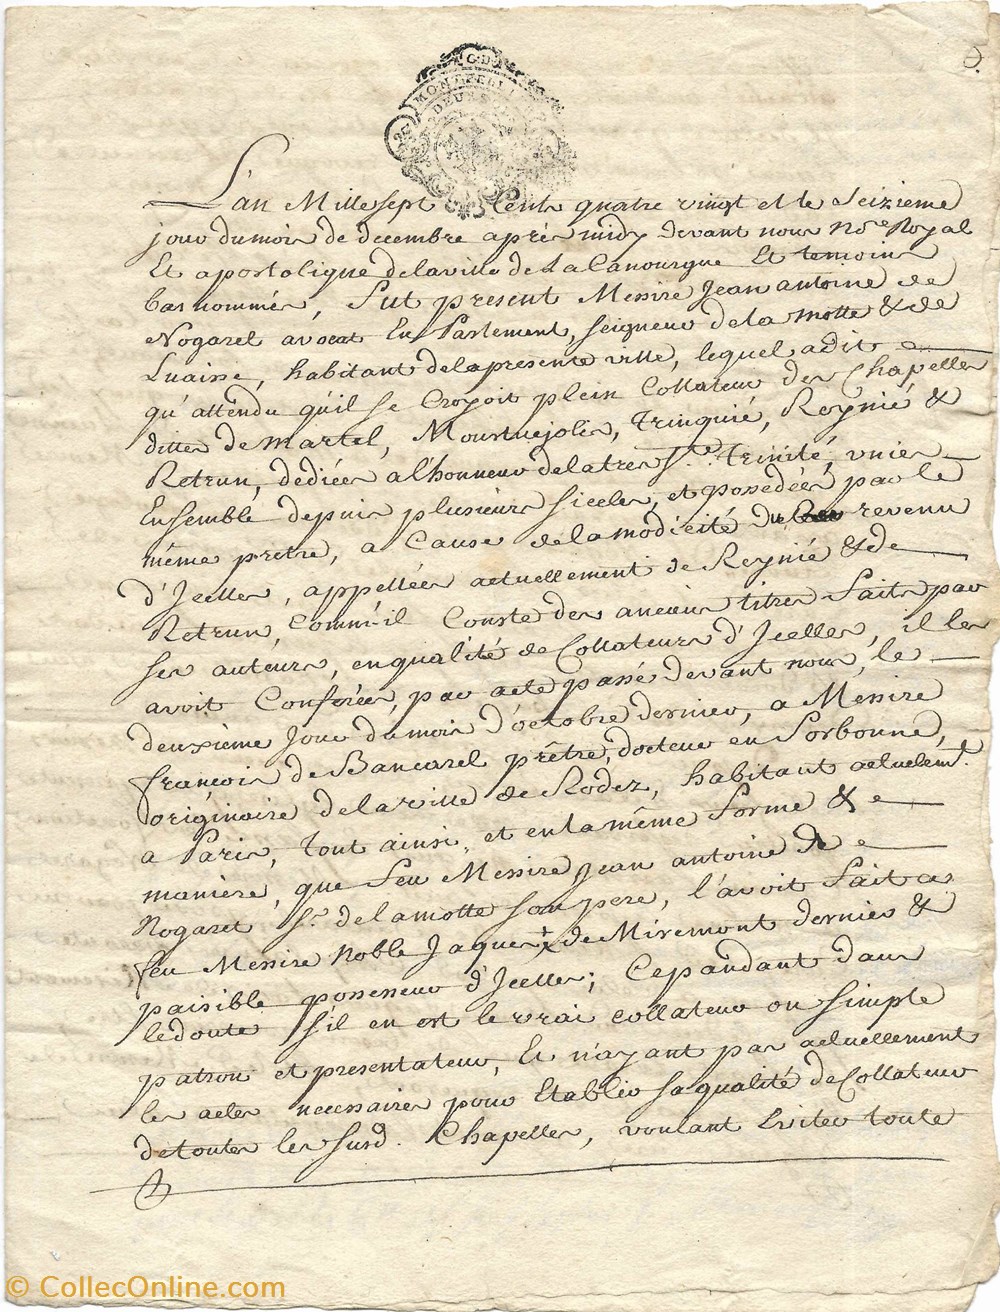 G.D
MONTPELL
DEUX S
L'an Mille sept Cents quatre vingt et le seizieme
jour du mois de decembre après midy devant nous No.re Royal
Et apostolique de la ville de La Canourgue Et temoins
bas nommés, fut present Messire Jean antoine de
Nogaret avocat En Parlement, seigneur de la motte & de
Luaisse, habitant de la presente ville, lequel a dit
qu'attendu qu'il se croyoit plein Collateur des Chapelles
dittes de Martel, Moustuejols, Trinquié, Reynié &
Retrun, dediées a l'honneur de la tres s.te Trinité, unies
Ensemble depuis plusieurs siecles, et possedées par le
même prètre, a Cause de la modicité du revenu
d'Icelles, appellées actuellement de Reynié & de
Retrun, Comm'il Conste des anciens titres faits par
ses auteurs, en qualité de Collateurs d'Icelles, il les
avoit Conferées, par acte passé devant nous, le
deuxième Jour du mois d'octobre dernier, a Messire
françois de Bancarel prêtre, docteur en Sorbonne,
originaire de la ville de Rodez, habitant actuelem.t
a Paris, tout ainsi, et en la même forme &
maniere, que feu Messire Jean antoine de
Nogaret s.r de la motte son pere, l'avoit fait a
feu Messire Noble Jaques de Miremont dernier &
paisible possesseur d'Icelles; Cependant dans
le doute s'il en est le vrai collateur ou simple
patron et presentateur, Et n'ayant pas actuellement
les actes necessaires pour Etablir sa qualité de Collateur
de toutes les susd. Chapelles, voulant Eviter toute
© CollecOnline.com